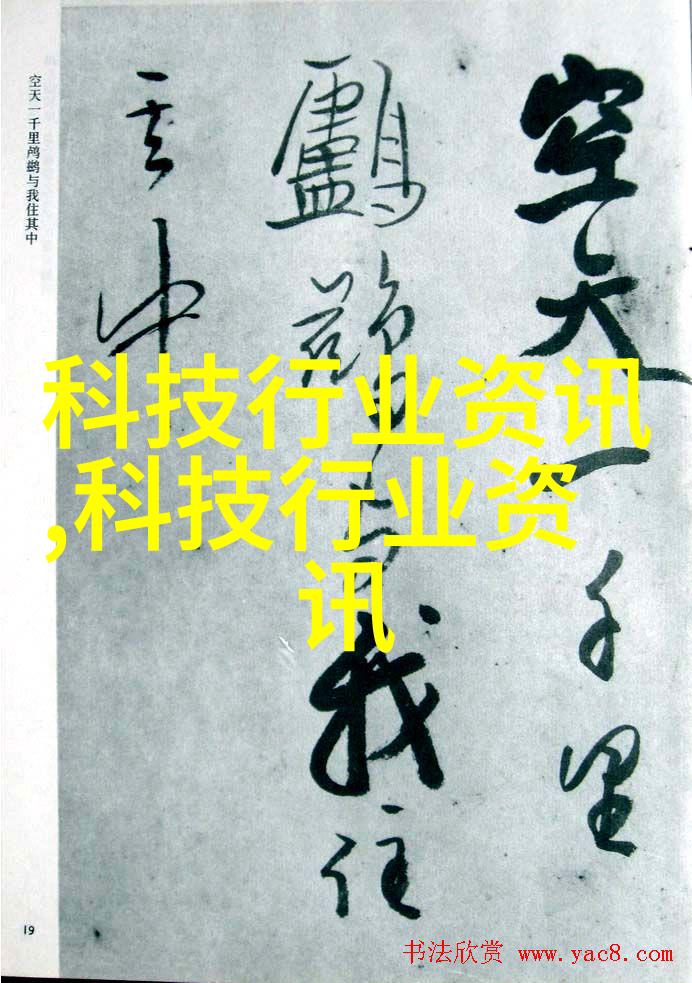 空天一千里
鸕鷀与我住
其中
空天一千里鸬鹚与我住其中
科技行业资讯
,科技行业资
讯
19
书法欣赏 www.yac8.com